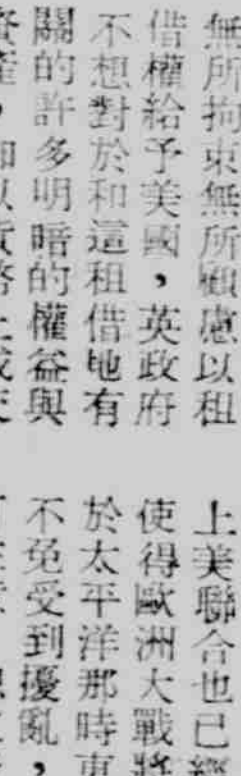 無所拘束無所顧慮以租
借權給予美國，英政府
不想對於和這租借地有
關的許多明暗的權益與
上美聯合也已經
使得歐洲大戰將
於太平洋那時東
不免受到擾亂，